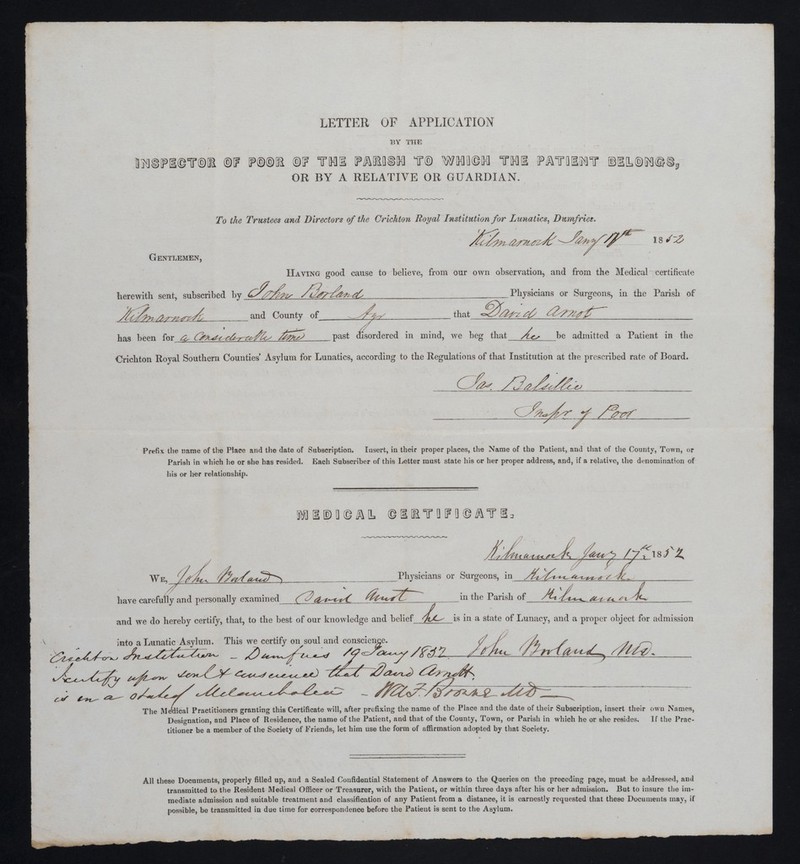 LETTER OF APPLICATION
BY THE
INSPECTOR OF POOR OF THE PARISH TO WHICH THE PATIENT BELONGS,
OR BY A RELATIVE OR GUARDIAN.
To the Trustees and Directors of the Crichton Royal Institution for Lunatics, Dumfries.
Kilmarnock Jany 17th 1852
GENTLEMEN,
HAVING good cause to believe, from our own observation, and from the Medical certificate
herewith sent, subscribed by John Borland Physicians or Surgeons, in the Parish of
Kilmarnock and County of Ayr that David Arnot
has been for a Considerable time past disordered in mind, we beg that he be admitted a Patient in the
Crichton Royal Southern Counties' Asylum for Lunatics, according to the Regulations of that Institution at the prescribed rate of Board.
Jas. Balsillie
Inspr of Poor
Prefix the name of the Place and the date of Subscription. Insert, in their proper places, the Name of the Patient, and that of the County, Town, or
Parish in which he or she has resided. Each Subscriber of this Letter must state his or her proper address, and, if a relative, the denomination of
his or her relationship.
MEDICAL CERTIFICATE.
Kilmarnock Jany 17th 1852
WE, John Borland Physicians or Surgeons, in Kilmarnock
have carefully and personally examined David Arnot in the Parish of Kilmarnock
and we do hereby certify, that, to the best of our knowledge and belief he is in a state of Lunacy, and a proper object for admission
into a Lunatic Asylum. This we certify on soul and conscience.
John Borland MD.
Crichton Institution - Dumfries 19 Jany 1852
I certify upon soul & conscience that David Arnott.
is in a state of Melancholia - W A F Browne MD
The Medical Practitioners granting this Certificate will, after prefixing the name of the Place and the date of their Subscription, insert their own Names,
Designation, and Place of Residence, the name of the Patient, and that of the County, Town, or Parish in which he or she resides. If the Prac-
titioner be a member of the Society of Friends, let him use the form of affirmation adopted by that Society.
All these Documents, properly filled up, and a Sealed Confidential Statement of Answers to the Queries on the preceding page, must be addressed, and
transmitted to the Resident Medical Officer or Treasurer, with the Patient, or within three days after his or her admission. But to insure the im-
mediate admission and suitable treatment and classification of any Patient from a distance, it is earnestly requested that these Documents may, if
possible, be transmitted in due time for correspondence before the Patient is sent to the Asylum.